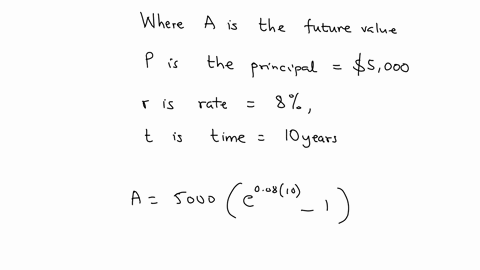 Where A is the future value
P is the principal = $5,000
r is rate = 8%,
t is time = 10 years
A = 5000 (e^0.08(10) - 1)